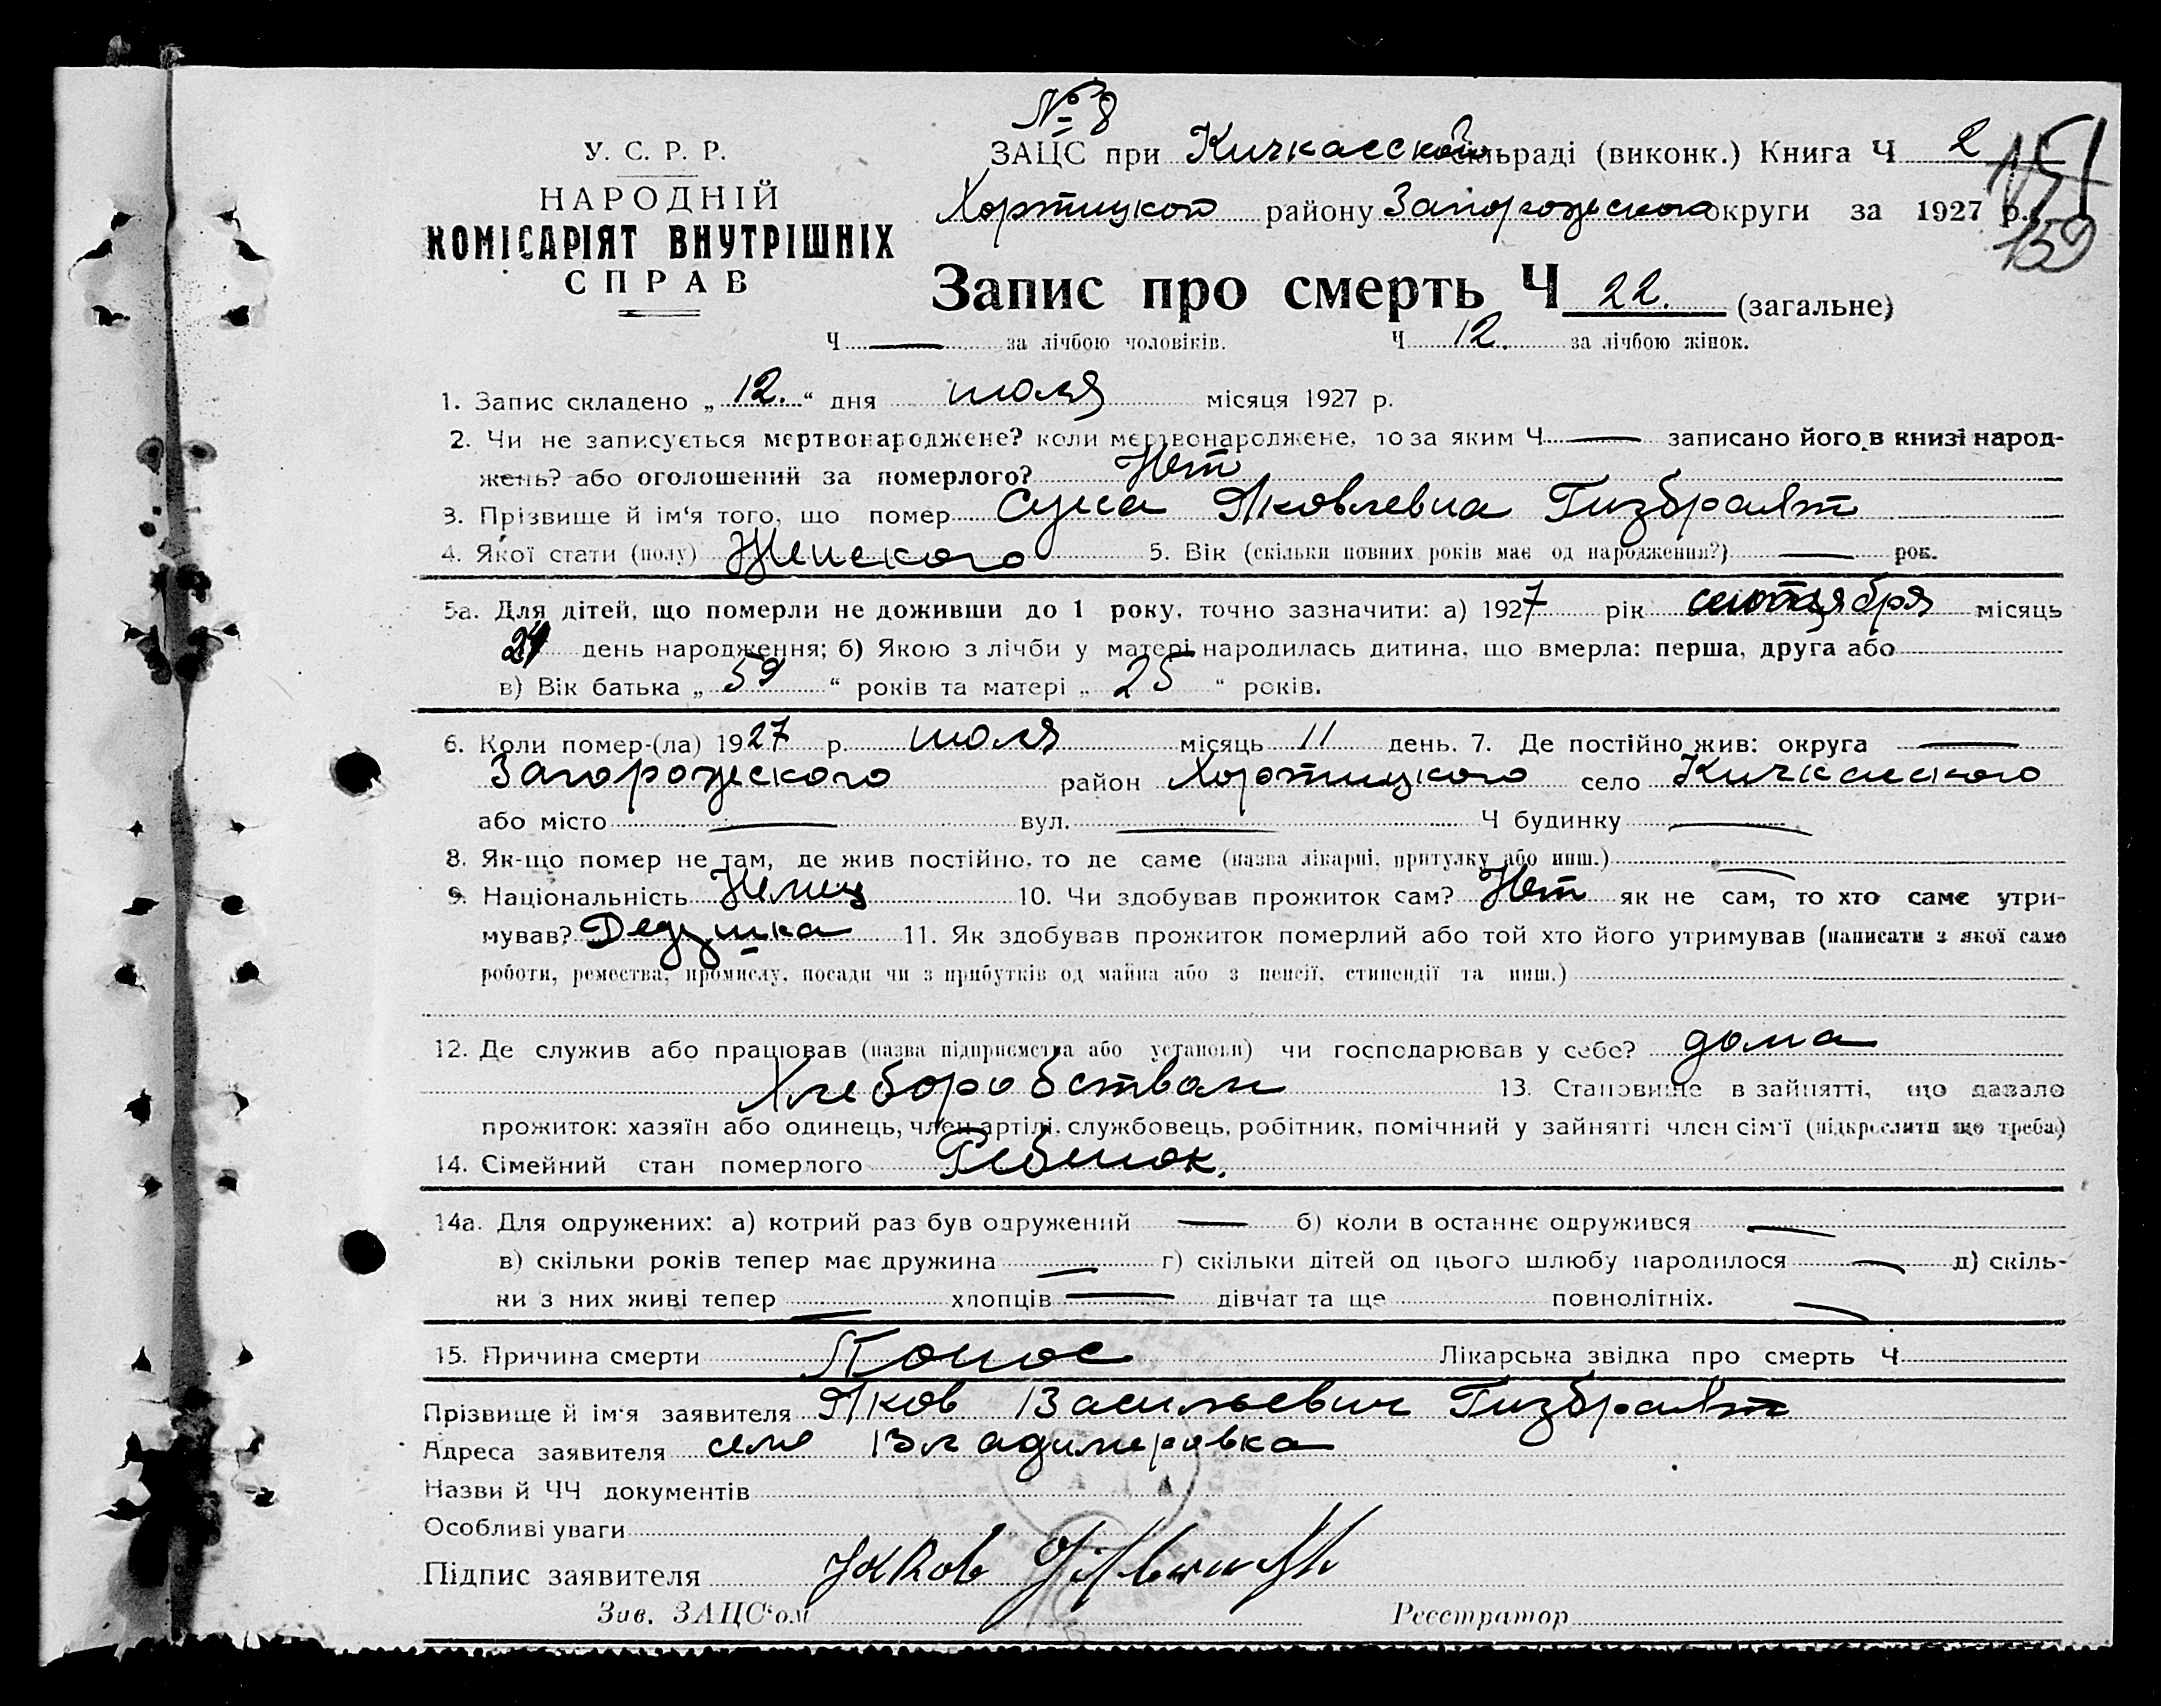 № 8
У. С. Р. Р.
НАРОДНІЙ
КОМІСАРІЯТ ВНУТРІШНІХ
СПРАВ
ЗАЦС при Кичкасской сільраді (виконк.) Книга Ч 2
151
Хортицкого району Запорожского округи за 1927 р.
159
Запис про смерть Ч 22. (загальне)
Ч — за лічбою чоловіків. Ч 12. за лічбою жінок.
1. Запис складено „ 12. “ дня июля місяця 1927 р.
2. Чи не записується мертвонароджене? коли мертвонароджене, то за яким Ч — записано його в книзі народ-
жень? або оголошений за померлого? Нет
3. Прізвище й ім'я того, що помер Суса Яковлевна Гизбрахт
4. Якої стати (полу) Женского 5. Вік (скільки повних років має од народження?) — рок.
5а. Для дітей, що померли не доживши до 1 року, точно зазначити: а) 1927 рік сентября місяць
24 день народження; б) Якою з лічби у матері народилась дитина, що вмерла: перша, друга або
в) Вік батька „ 59 “ років та матері „ 25 “ років.
6. Коли помер-(ла) 1927 р. июля місяць 11 день. 7. Де постійно жив: округа —
Запорожского район Хортицкого село Кичкасского
або місто — вул. — Ч будинку —
8. Як-що помер не там, де жив постійно, то де саме (назва лікарні, притулку або инш.) —
9. Національність Немец 10. Чи здобував прожиток сам? Нет як не сам, то хто саме утри-
мував? Дедушка 11. Як здобував прожиток померлий або той хто його утримував (написати з якої саме
роботи, ремества, промислу, посади чи з прибутків од майна або з пенсії, стипендії та инш.)
12. Де служив або працював (назва підприємства або установи) чи господарював у себе? дома
Хлеборобствам 13. Становище в зайнятті, що давало
прожиток: хазяїн або одинець, член артілі, службовець, робітник, помічний у зайнятті член сім'ї (підкреслити що треба)
14. Сімейний стан померлого Ребенок.
14а. Для одружених: а) котрий раз був одружений — б) коли в останнє одружився —
в) скільки років тепер має дружина — г) скільки дітей од цього шлюбу народилося — д) скіль-
ки з них живі тепер — хлопців — дівчат та ще повнолітніх. —
15. Причина смерти Понос Лікарська звідка про смерть Ч
Прізвище й ім'я заявителя Яков Васильевич Гизбрахт
Адреса заявителя село Владимеровка
Назви й ЧЧ документів
Особливі уваги
Підпис заявителя Jakob Gisbrecht
Зав. ЗАЦС'ом Реєстратор